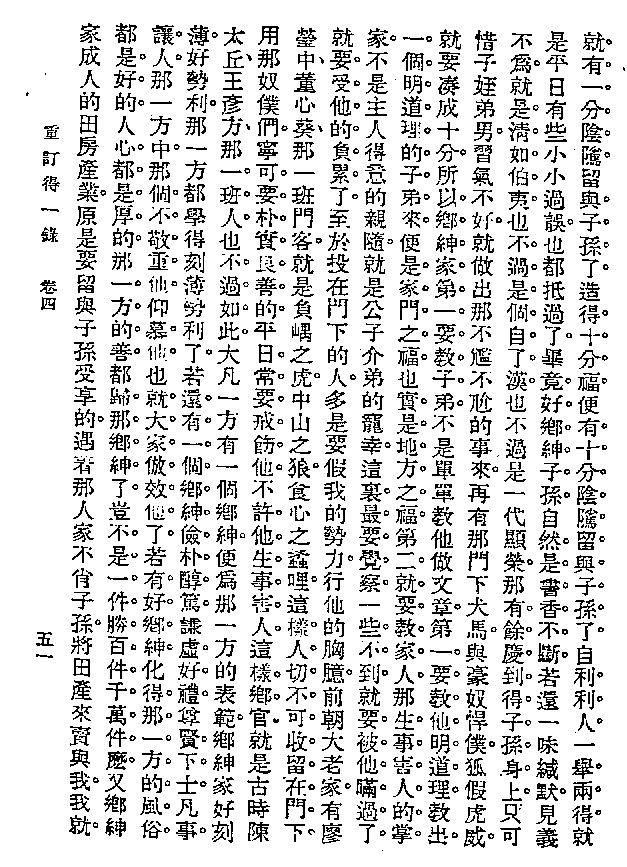 就有一分陰隲留與子孫了造得十分福便有十分陰隲留與子孫了自利利人一舉兩得就
是平日有些小小過誤也都抵過了畢竟好鄉紳子孫自然是書香不斷若還一味緘默見義
不爲就是清如伯夷也不過是個自了漢也不過是一代顯榮那有餘慶到得子孫身上只可
惜子姪弟男習氣不好就做出那不尷不尬的事來再有那門下犬馬與豪奴悍僕狐假虎威
就要湊成十分所以鄉紳家第一要教子弟不是單單教他做文章第一要教他明道理教出
一個明道理的子弟來便是家門之福也實是地方之福第二就要教家人那生事害人的掌
家不是主人得意的親隨就是公子介弟的寵幸這裏最要覺察一些不到就要被他瞞過了
就要受他的負累了至於投在門下的人多是要假我的勢力行他的胸臆前朝大老家有廖
瑩中董心葵那一班門客就是負嵎之虎中山之狼食心之蟊哩這樣人切不可收留在門下
用那奴僕們寧可要朴實良善的平日常要戒飭他不許他生事害人這樣鄉官就是古時陳
太丘王彥方那一班人也不過如此大凡一方有一個鄉紳便爲那一方的表範鄉紳家好刻
薄好勢利那一方都學得刻薄勢利了若還有一個鄉紳儉朴醇篤謙虛好禮尊賢下士凡事
讓人那一方中那個不敬重他仰慕他也就大家倣效他了若有好鄉紳化得那一方的風俗
都是好的人心都是厚的那一方的善都歸那鄉紳了豈不是一件勝百件千萬件麼又鄉紳
家成人的田房產業原是要留與子孫受享的遇着那人家不肖子孫將田產來賣與我我就
重訂得一錄 卷四
五一